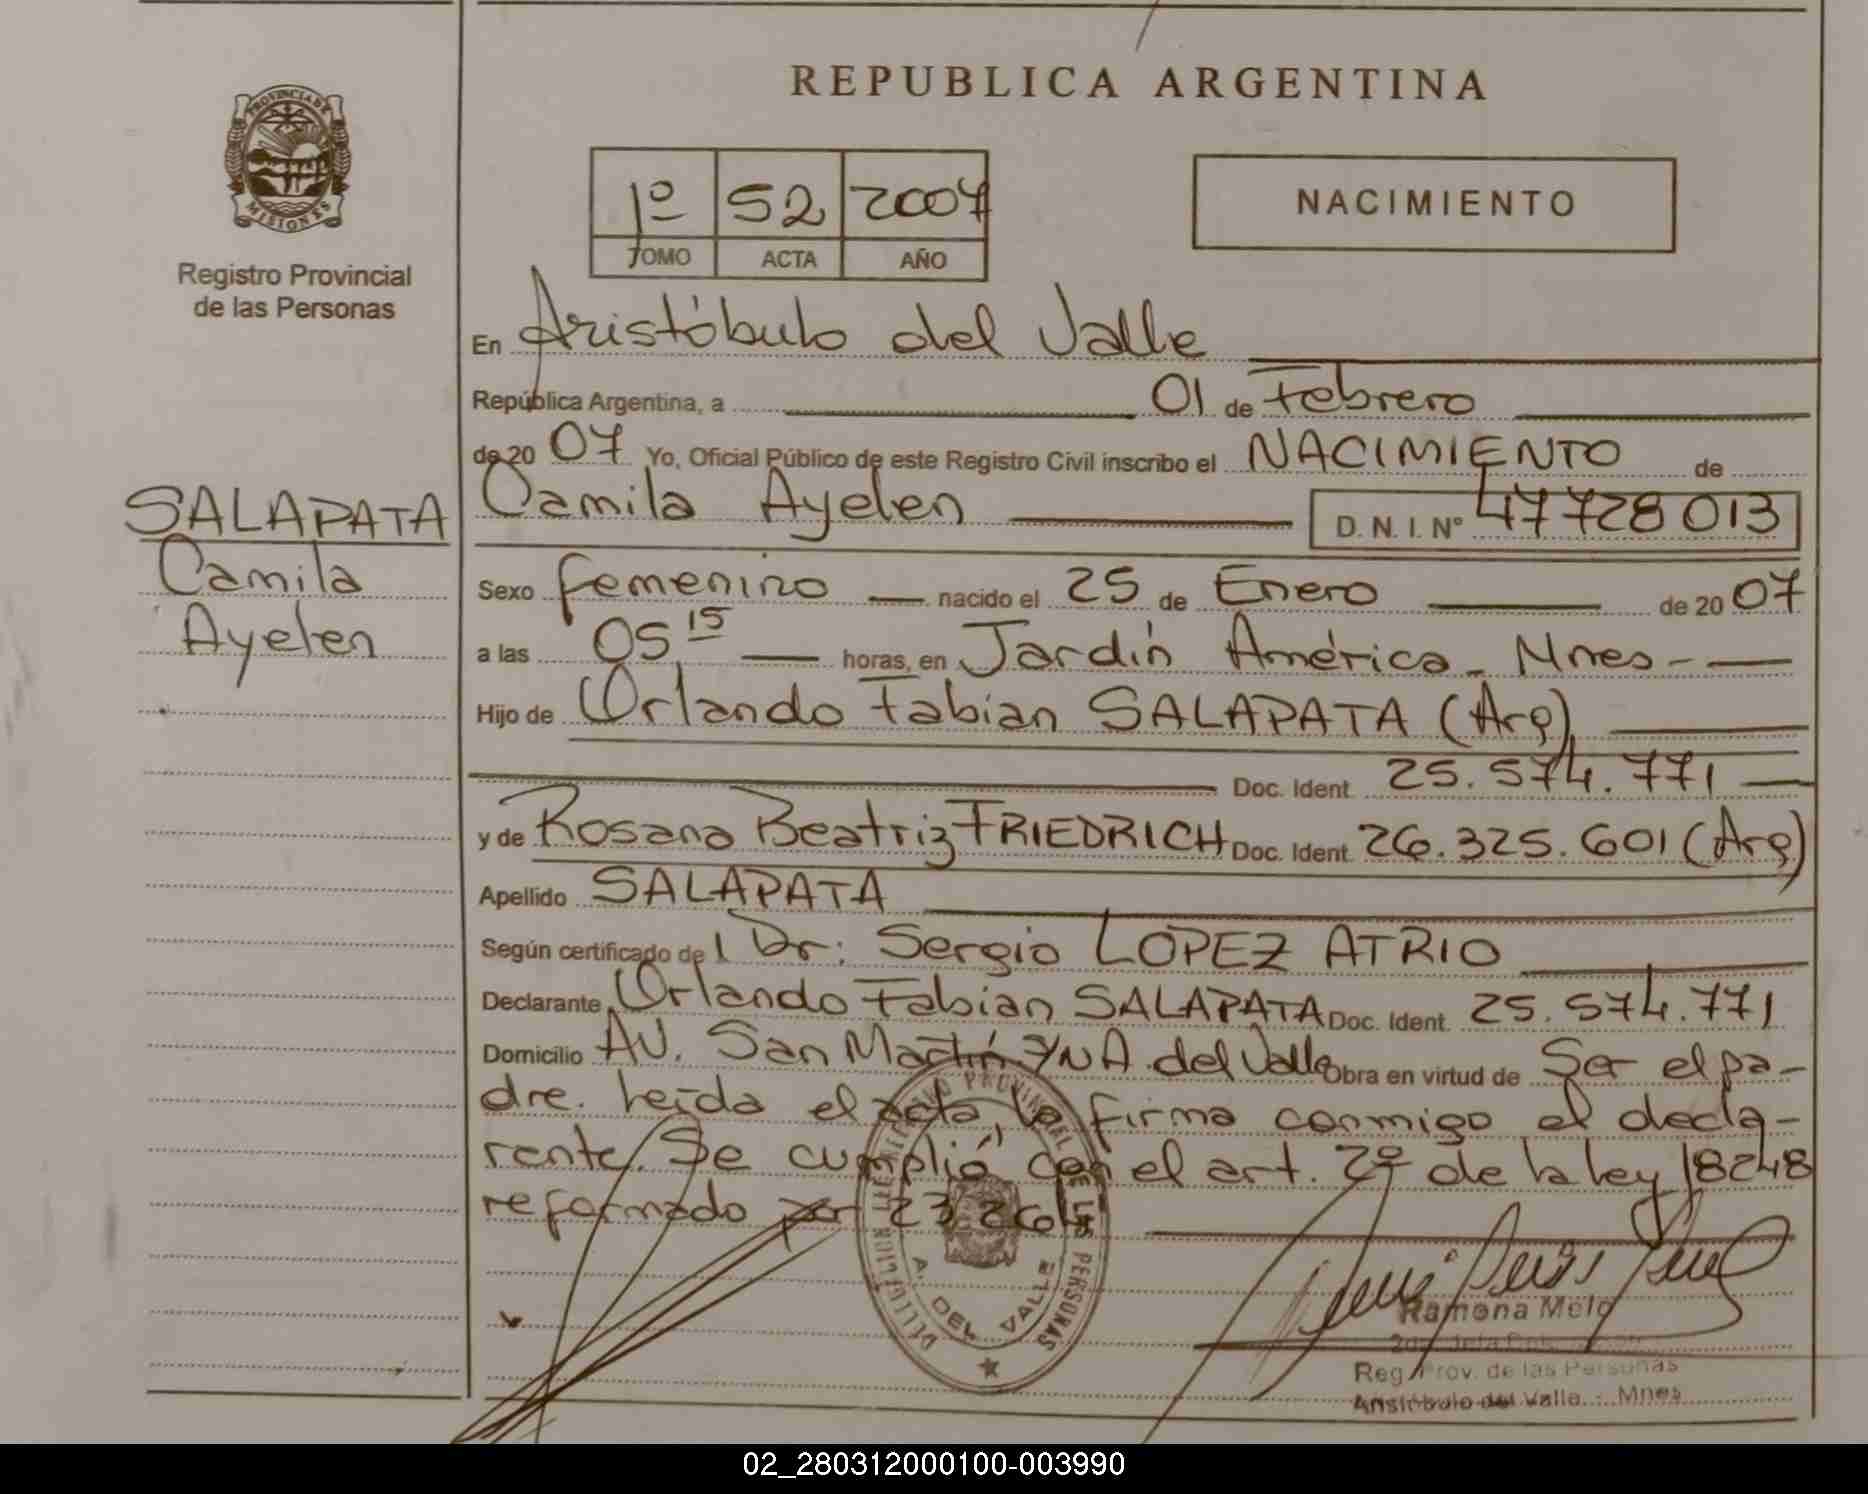 REPUBLICA ARGENTINA
PROVINCIA DE
MISIONES
Registro Provincial
de las Personas
1º 52 2007
TOMO ACTA AÑO
NACIMIENTO
En Aristóbulo del Valle
República Argentina, a 01 de Febrero
de 20 07 Yo, Oficial Público de este Registro Civil inscribo el NACIMIENTO de
Camila Ayelen D. N. I. Nº 47728013
SALAPATA
Camila
Ayelen
Sexo femenino nacido el 25 de Enero de 20 07
a las 05 15 horas, en Jardín América - Mnes-
Hijo de Orlando Fabian SALAPATA (Arg)
Doc. Ident. 25.574.771
y de Rosana Beatriz FRIEDRICH Doc. Ident. 26.325.601 (Arg)
Apellido SALAPATA
Según certificado de l Dr: Sergio LOPEZ ATRIO
Declarante Orlando Fabian SALAPATA Doc. Ident. 25.574.771
Domicilio AV. San Martín A. del Valle Obra en virtud de Ser el pa-
dre. Leída el acta, la firma conmigo el decla-
rante. Se cumplió con el art. 2º de la ley 18248
reformado por
A. DEL VALLE
Ramona Melo
Reg. Prov. de las Personas
Aristóbulo del Valle - Mnes
02_280312000100-003990